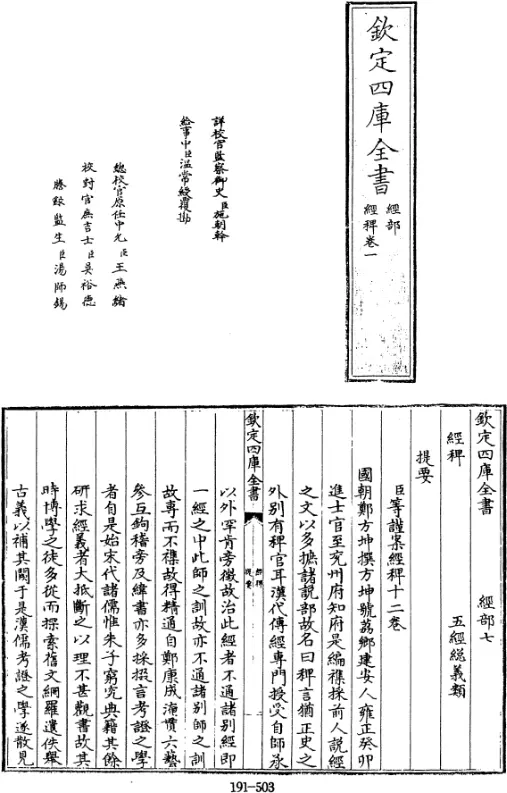 欽定四庫全書
經部
經稗卷一
詳校官監察御史臣施朝幹
給事中臣溫常綬覆勘
總校官原任中允臣王燕緒
校對官庶吉士臣吳裕德
謄錄監生臣湯師錫
欽定四庫全書 經部七
經稗 五經總義類
提要
臣等謹案經稗十二卷
國朝鄭方坤撰方坤號荔鄉建安人雍正癸卯
進士官至兖州府知府是編襍採前人說經
之文以多摭諸說部故名曰稗言猶正史之
外别有稗官耳漢代傳經專門授受自師承
欽定四庫全書
經稗
提要
以外罕肯旁徵故治此經者不通諸别經即
一經之中此師之訓故亦不通諸别師之訓
故專而不襍故得精通自鄭康成淹貫六藝
參互鉤稽旁及緯書亦多採摭言考證之學
者自是始宋代諸儒惟朱子窮究典籍其餘
研求經義者大抵斷之以理不甚觀書故其
時博學之徒多從而探索舊文網羅遺佚舉
古義以補其闕于是漢儒考證之學遂散見
191-503